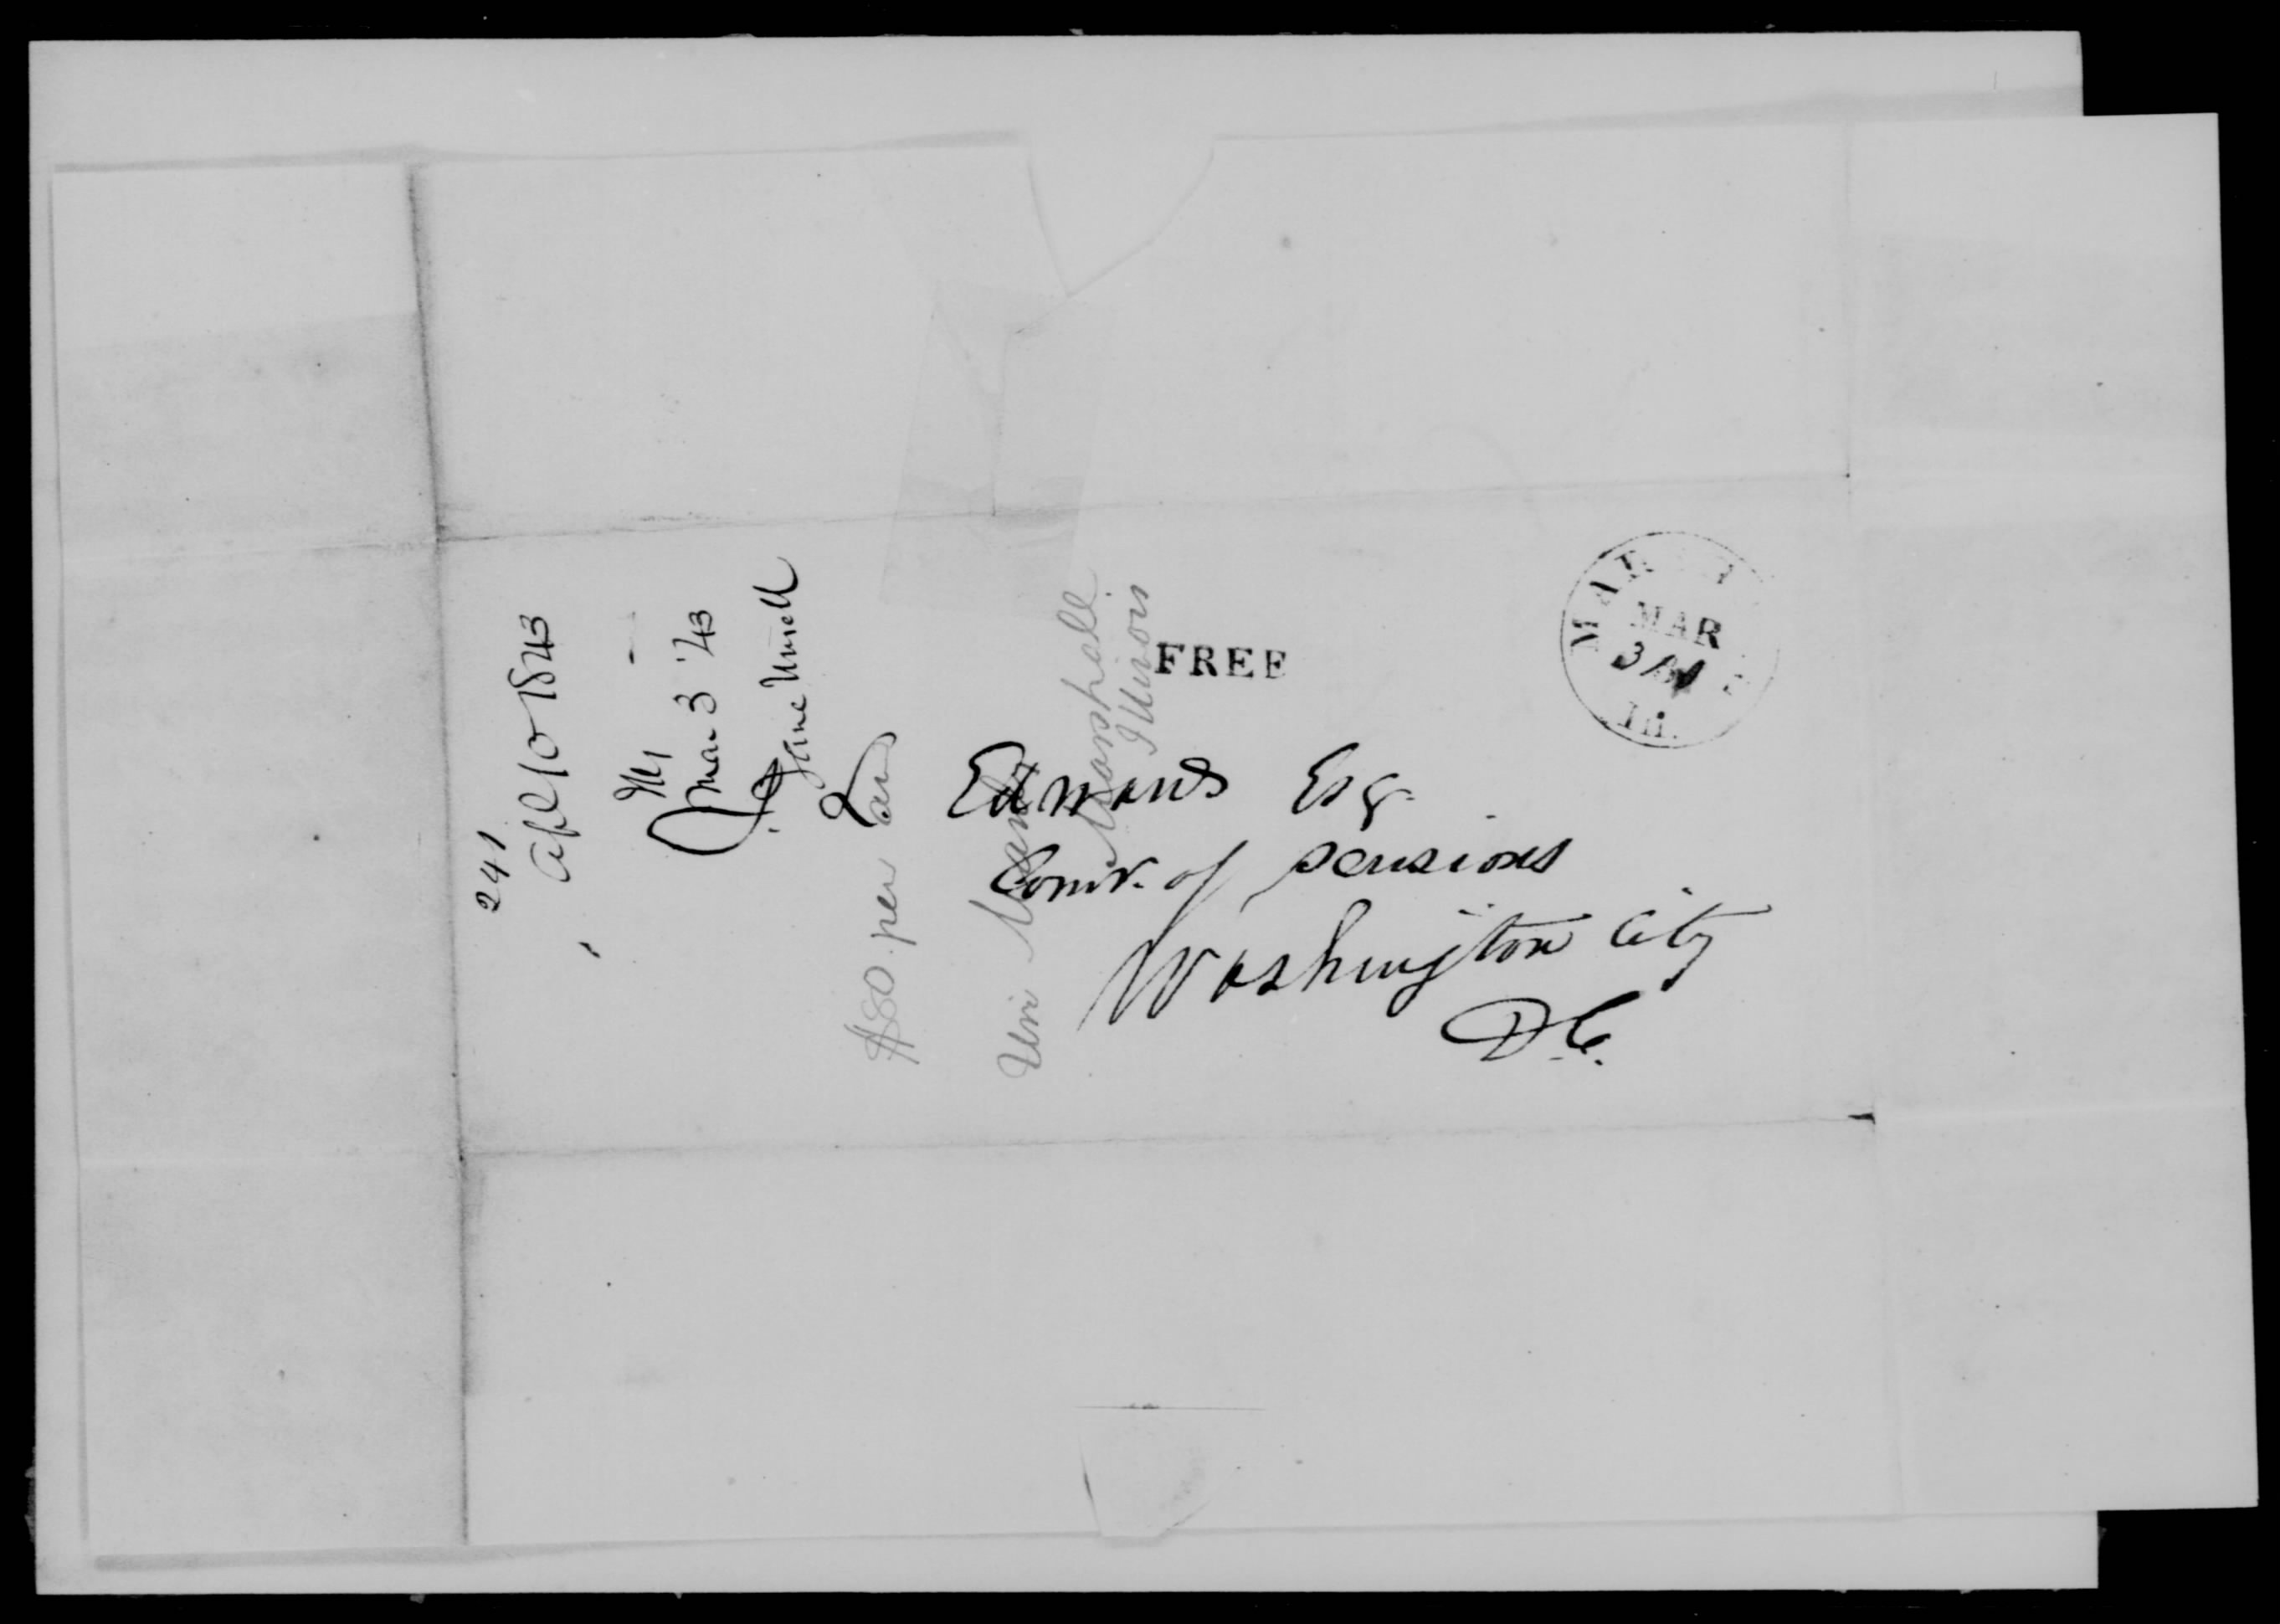 FREE
MAR
3
Ill.
J. L. Edwards Esq.
Comr. of pensions
Washington City
D.C.
241
Apl 10 1843
Ill
Mar 3 '43
Jane
$80 per an
Wm
Marshall
Illinois